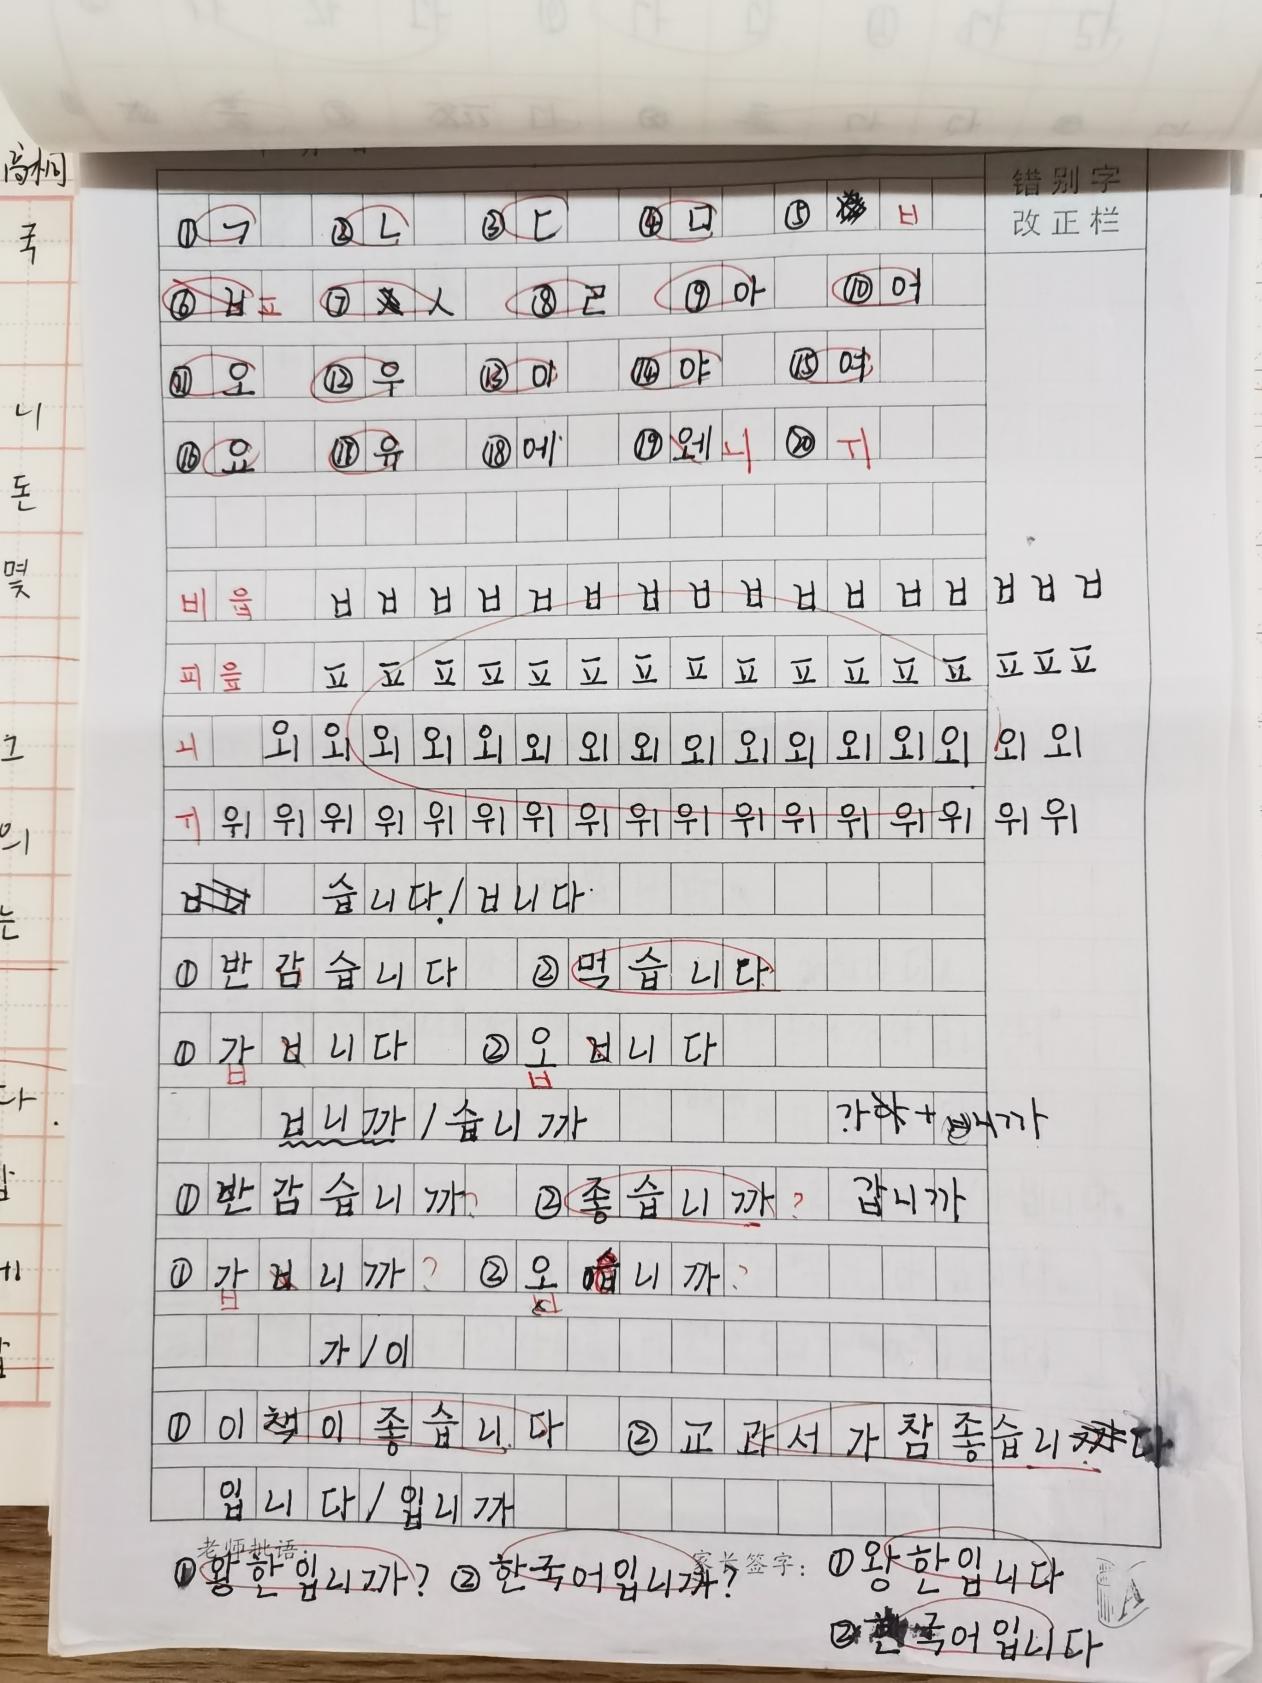 高桐
错别字
改正栏
①ㄱ ②ㄴ ③ㄷ ④ㅁ ⑤ ㅂ
⑥ㅂㅍ ⑦ㅅ ⑧ㄹ ⑨아 ⑩어
⑪오 ⑫우 ⑬이 ⑭야 ⑮여
⑯요 ⑰유 ⑱에 ⑲외ㅚ ⑳ㅟ
비읍 ㅂㅂㅂㅂㅂㅂㅂㅂㅂㅂㅂㅂㅂㅂㅂㅂ
피읖 ㅍㅍㅍㅍㅍㅍㅍㅍㅍㅍㅍㅍㅍㅍㅍㅍ
ㅚ 외외외외외외외외외외외외외외외외
ㅟ 위위위위위위위위위위위위위위위위위
습니다/ㅂ니다
①반감습니다 ②먹습니다
①가ㅂ니다 ②오ㅂ니다
ㅂ ㅂ
ㅂ니까/습니까 가 + ㅂ니까
①반감습니까? ②좋습니까? 갑니까
①가ㅂ니까? ②오습니까?
ㅂ
가/이
①이책이좋습니다 ②교과서가참좋습니다
입니다/입니까
老师批语: 家长签字:
①왕한입니까? ②한국어입니까? ①왕한입니다
②한국어입니다
국
니
돈
몇
그
의
는
다.